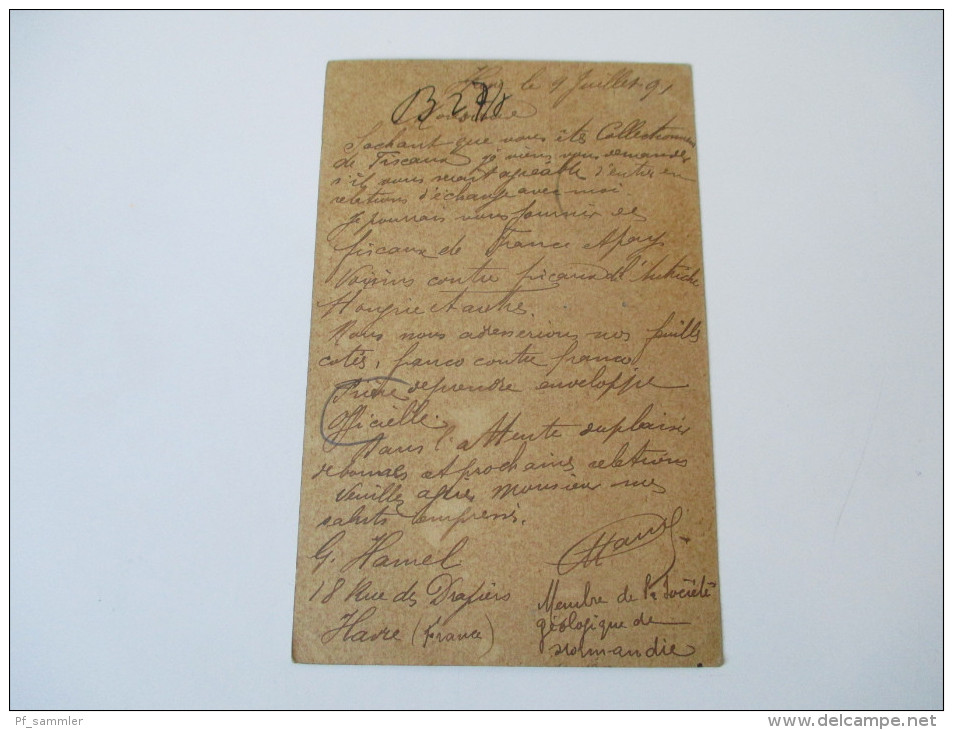 le 9 Juillet 91
B 2
Monsieur
Sachant que vous êtes Collectionneur
de Fiscaux je viens vous demander
s'il vous serait agréable d'entrer en
relations d'échange avec moi
Je pourrais vous fournir des
fiscaux de France & pays
Voisins contre fiscaux de l'Autriche
Hongrie & autres.
Nous nous adresserions nos feuilles
cotés, franco contre franco
Prière de prendre enveloppe
Officielle.
Dans l'attente du plaisir
de bonnes et prochaines relations
Veuillez agréer Monsieur mes
saluts empressés.
G. Hamel
18 Rue des Drapiers
Havre (France)
Hamel
Membre de la Société
géologique de
Normandie
Pf_sammler
http://www.delcampe.net